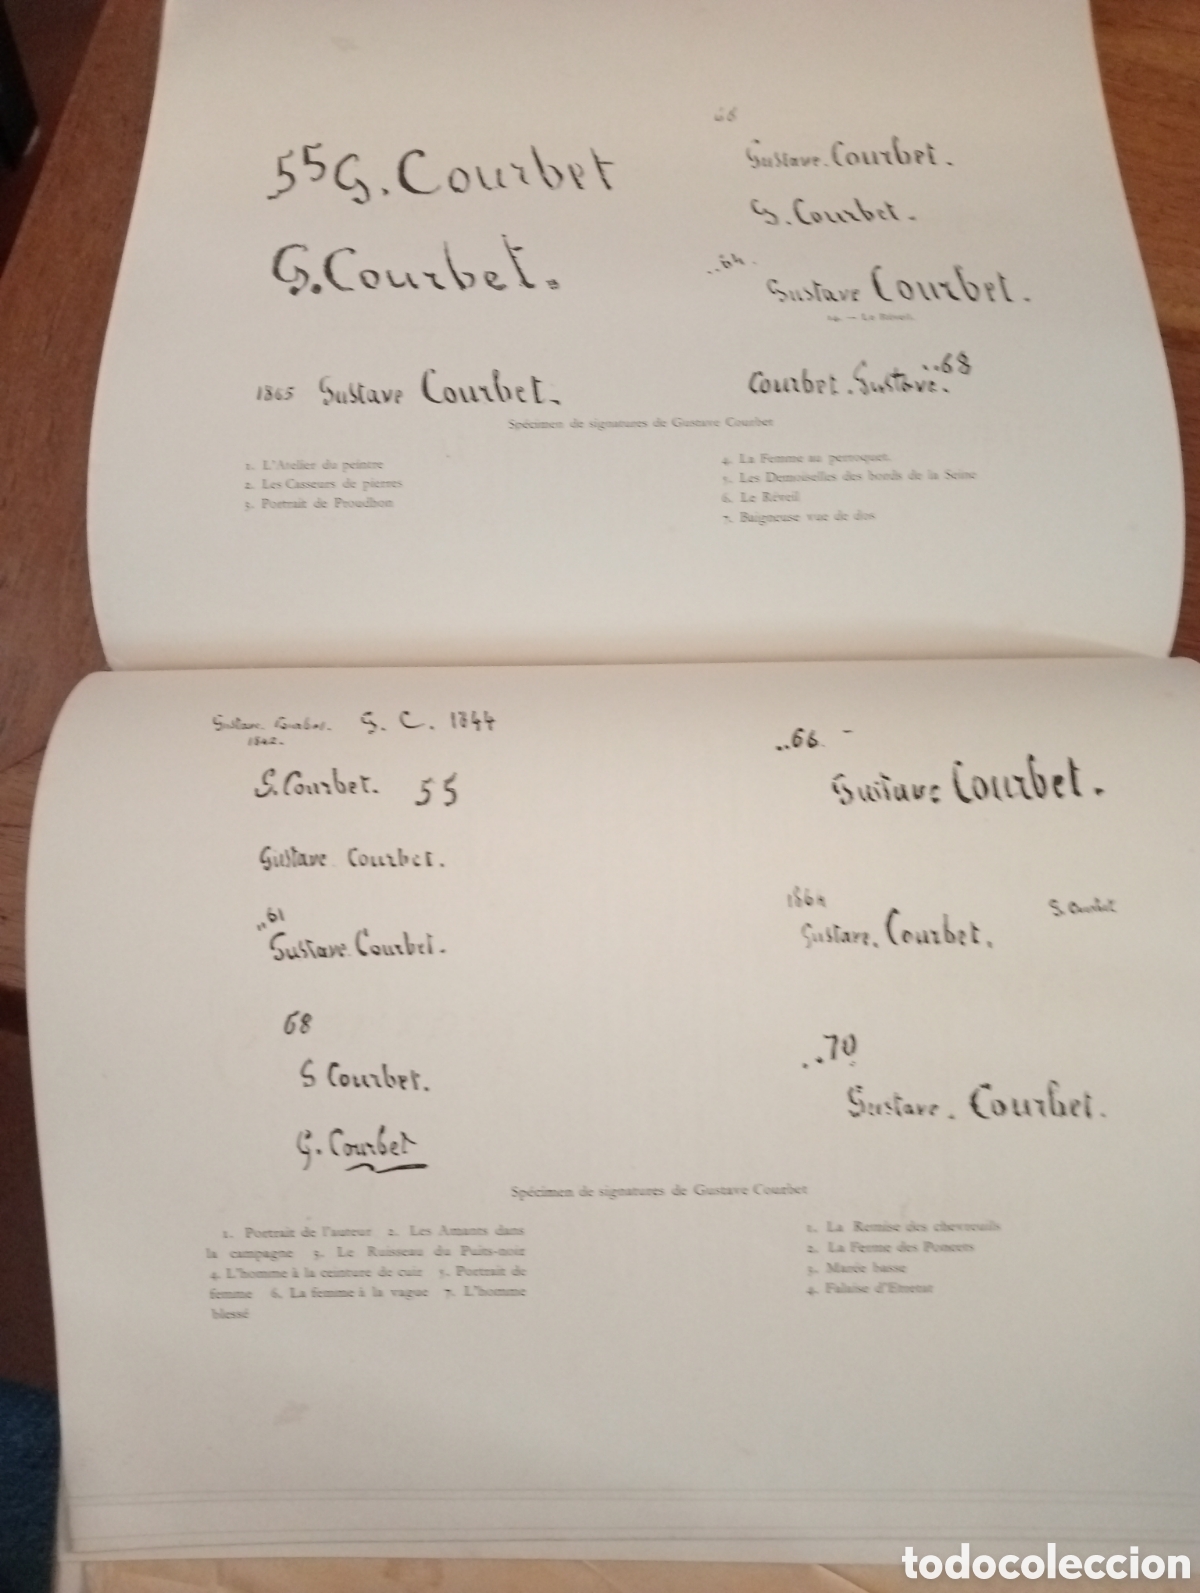 55 G. Courbet
G. Courbet.
1865 Gustave Courbet.
66
Gustave. Courbet.
G. Courbet.
..64.
Gustave Courbet.
Le Réveil.
Courbet. Gustave. ..68
Spécimen de signatures de Gustave Courbet
1. L'Atelier du peintre
2. Les Casseurs de pierres
3. Portrait de Proudhon
4. La Femme au perroquet.
5. Les Demoiselles des bords de la Seine
6. Le Réveil
7. Baigneuse vue de dos
Gustave. Courbet. G. C. 1844
1842.
G. Courbet. 55
Gustave Courbet.
..61
Gustave. Courbet.
68
G Courbet.
G. Courbet
..66
Gustave Courbet.
1864
Gustave. Courbet. G. Courbet
..70
Gustave. Courbet.
Spécimen de signatures de Gustave Courbet
1. Portrait de l'auteur 2. Les Amants dans
la campagne 3. Le Ruisseau du Puits-noir
4. L'homme à la ceinture de cuir 5. Portrait de
femme 6. La femme à la vague 7. L'homme
blessé
1. La Remise des chevreuils
2. La Ferme des Poncets
3. Marée basse
4. Falaise d'Etretat
todocoleccion